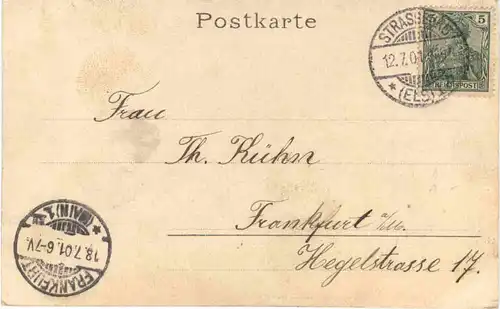 Postkarte
STRASSBURG
12.7.01
* (ELS)
5
REICHSPOST
Frau
Th. Kühn
Frankfurt
Hegelstrasse 17.
FRANKFURT
18.7.01. 6-7V.
* (MAIN) 1.